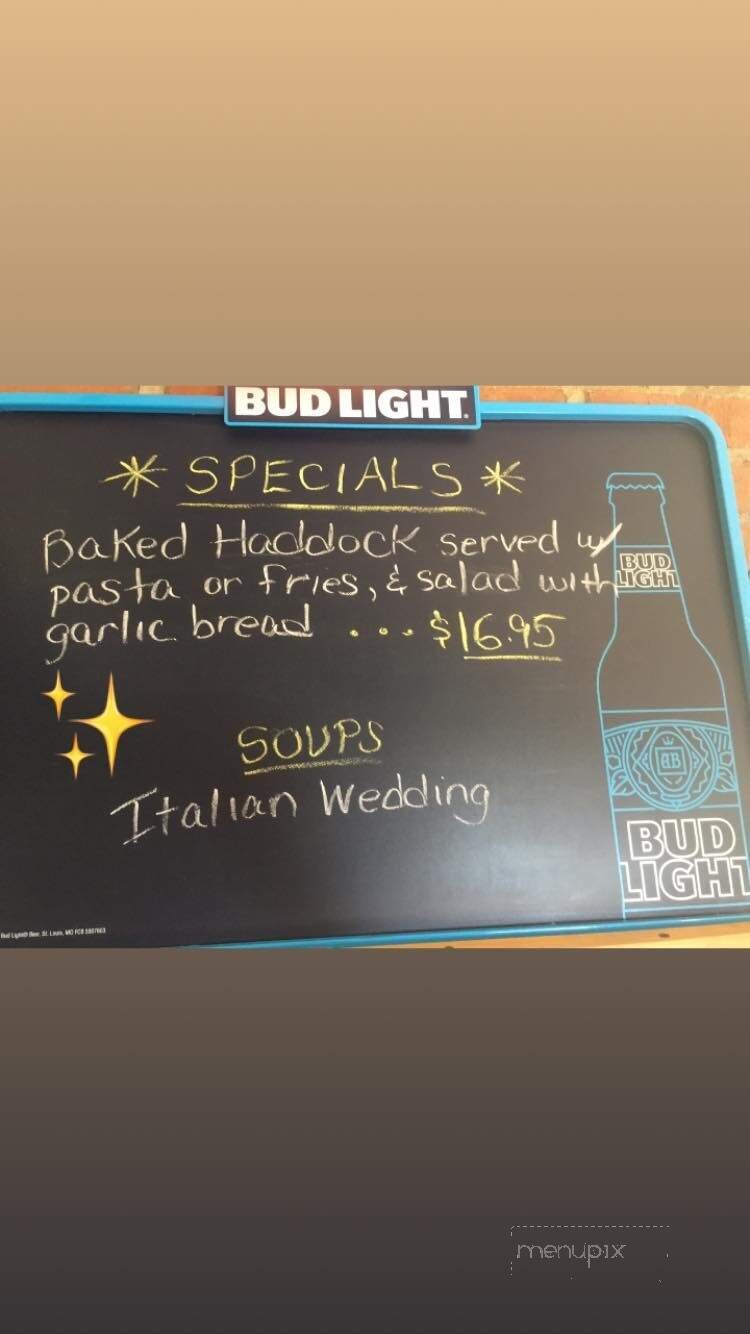 BUD LIGHT.
* SPECIALS *
Baked Haddock served w/
pasta or fries, & salad with
garlic bread ... $16.95
SOUPS
Italian Wedding
BUD
LIGHT
BUD
LIGHT
Bud Light® Beer, St. Louis, MO
menupix